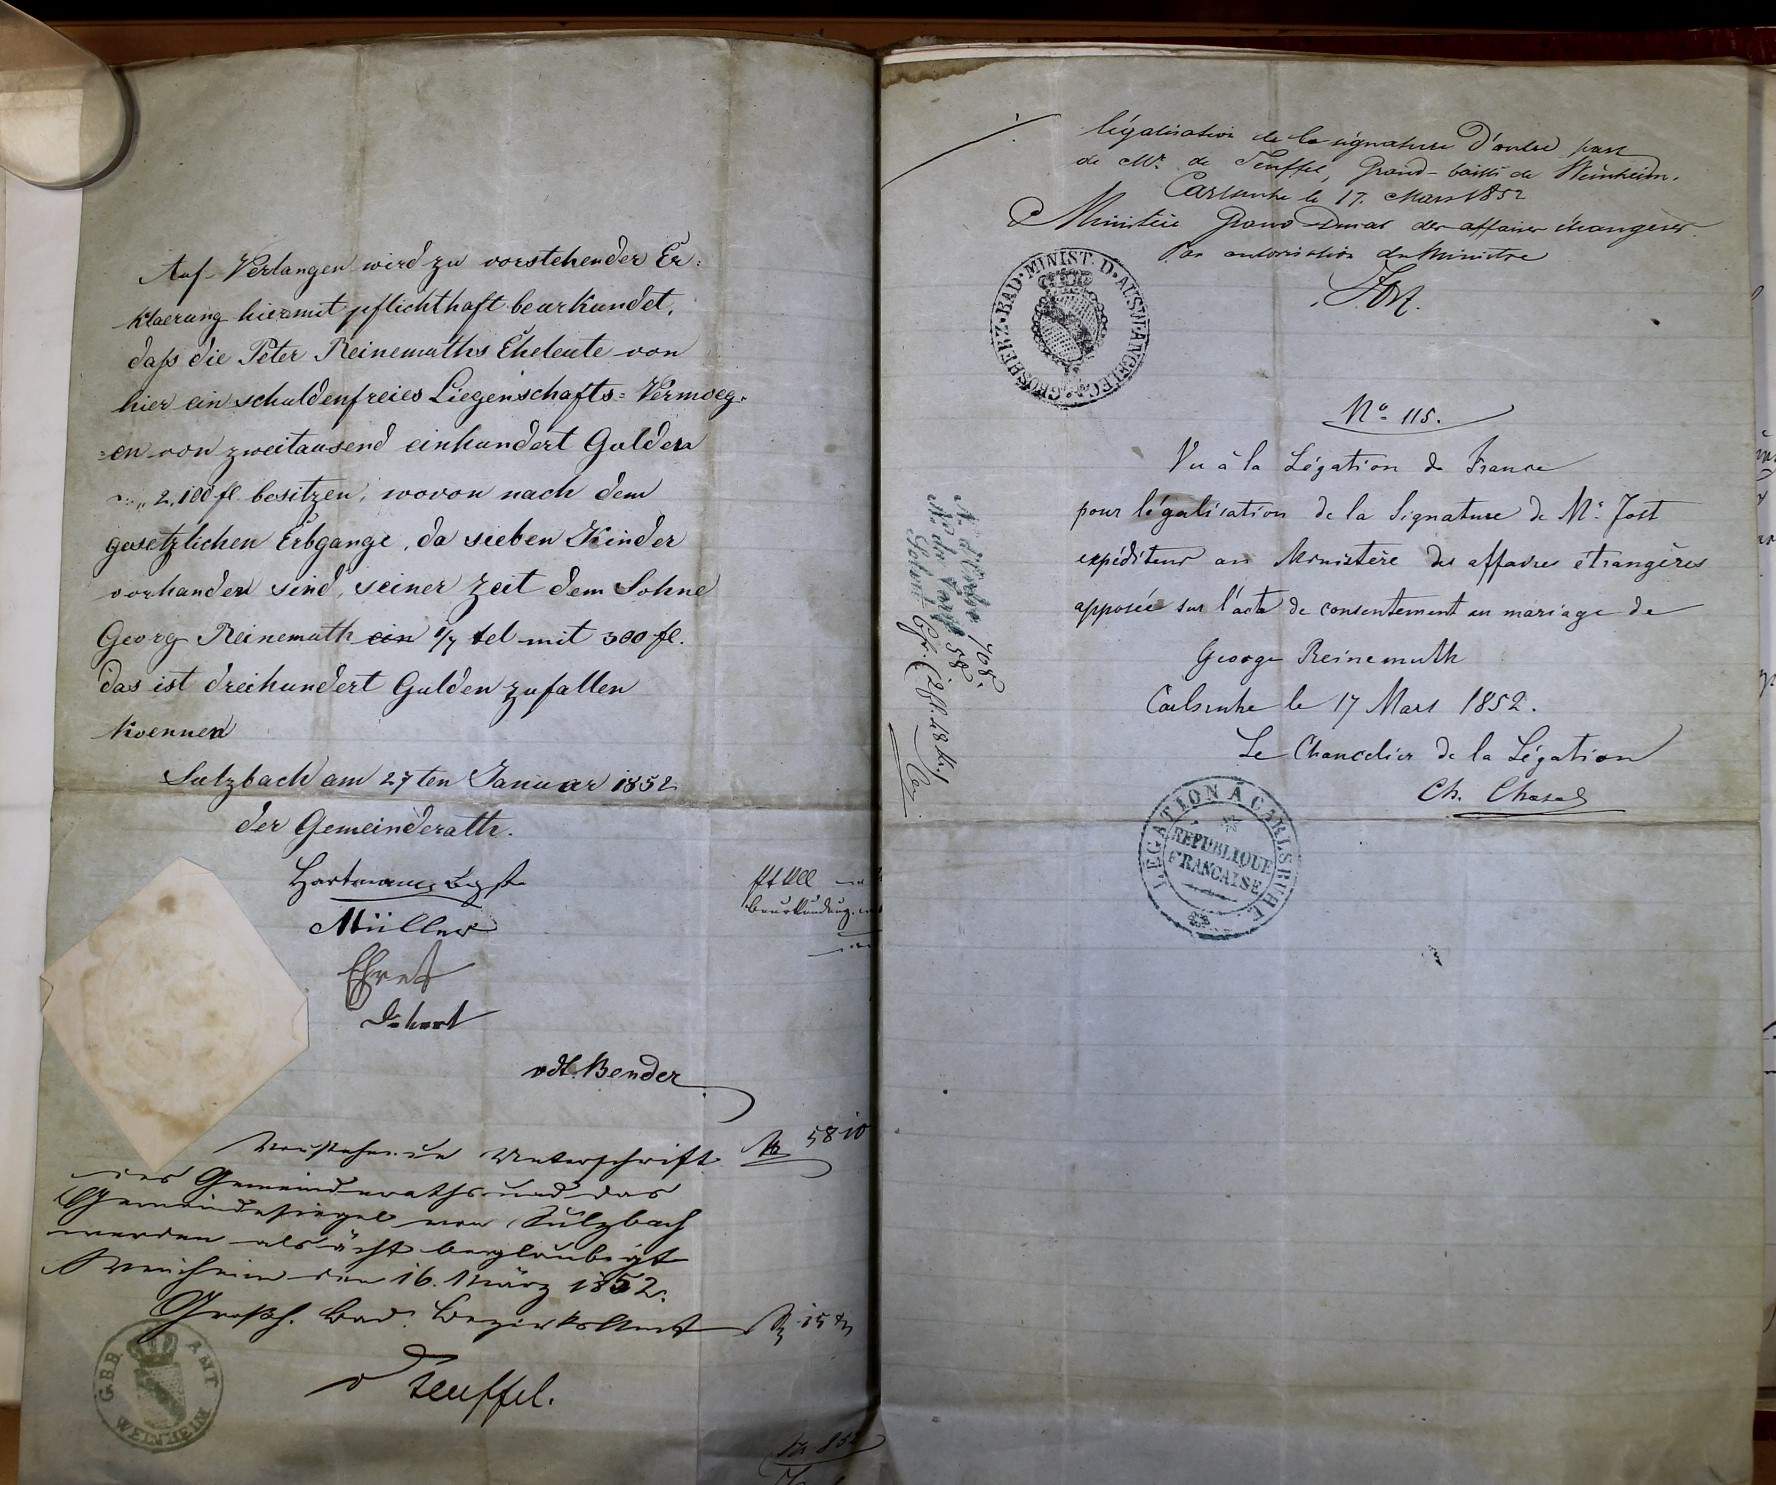 Auf Verlangen wird zu vorstehender Er-
klaerung hiermit pflichthaft beurkundet,
daß die Peter Reinemuths Eheleute von
hier ein schuldenfreies Liegenschafts= Vermoeg-
=en von zweitausend einhundert Gulden
2,100 fl. besitzen, wovon nach dem
gesetzlichen Erbgange, da sieben Kinder
vorhanden sind, seiner Zeit dem Sohne
Georg Reinemuth ein 1/7 tel mit 300 fl.
das ist dreihundert Gulden zufallen
koennen
Sulzbach am 27ten Januar 1852
der Gemeinderath.
Hartmann
Müller
Ehret
vdt. Bender
Beurkundung
Vorstehende Unterschrift
des Gemeinderaths und das
Gemeindesiegel von Sulzbach
werden als ächt beglaubigt
Weinheim den 16. März 1852.
Großh. Bad. Bezirksamt
v Teuffel.
G.B.B. AMT WEINHEIM
58
légalisation de la signature d'autre part
de Mr. de Teuffel, Grand-bailli de Weinheim.
Carlsruhe le 17. Mars 1852
Ministère Grand Ducal des affaires étrangères.
Par autorisation du Ministre
Jost.
GROSHERZ. BAD. MINIST. D. AUSW. ANGELEG.
No. 115.
Vu à la Légation de France
pour légalisation de la Signature de Mr. Jost
expéditeur au Ministère des affaires étrangères
apposée sur l'acte de consentement au mariage de
George Reinemuth
Carlsruhe le 17 Mars 1852.
Le Chancelier de la Légation
Ch.
LEGATION A CARLSRUHE
REPUBLIQUE
FRANCAISE
N. d'Ordre 708.
No. du Tarif 58.